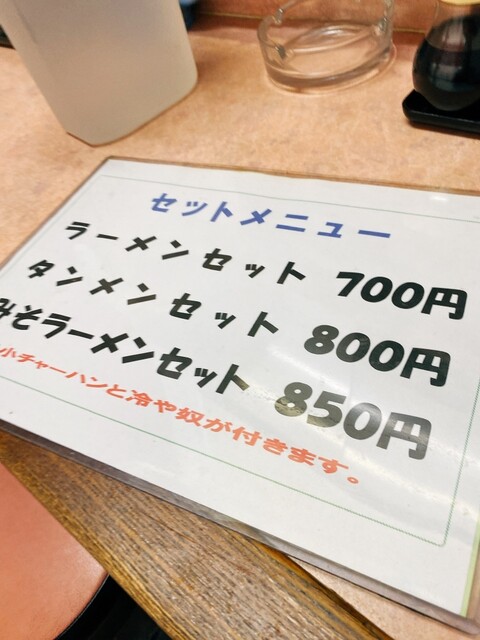 セットメニュー
ラーメンセット 700円
タンメンセット 800円
みそラーメンセット 850円
小チャーハンと冷や奴が付きます。